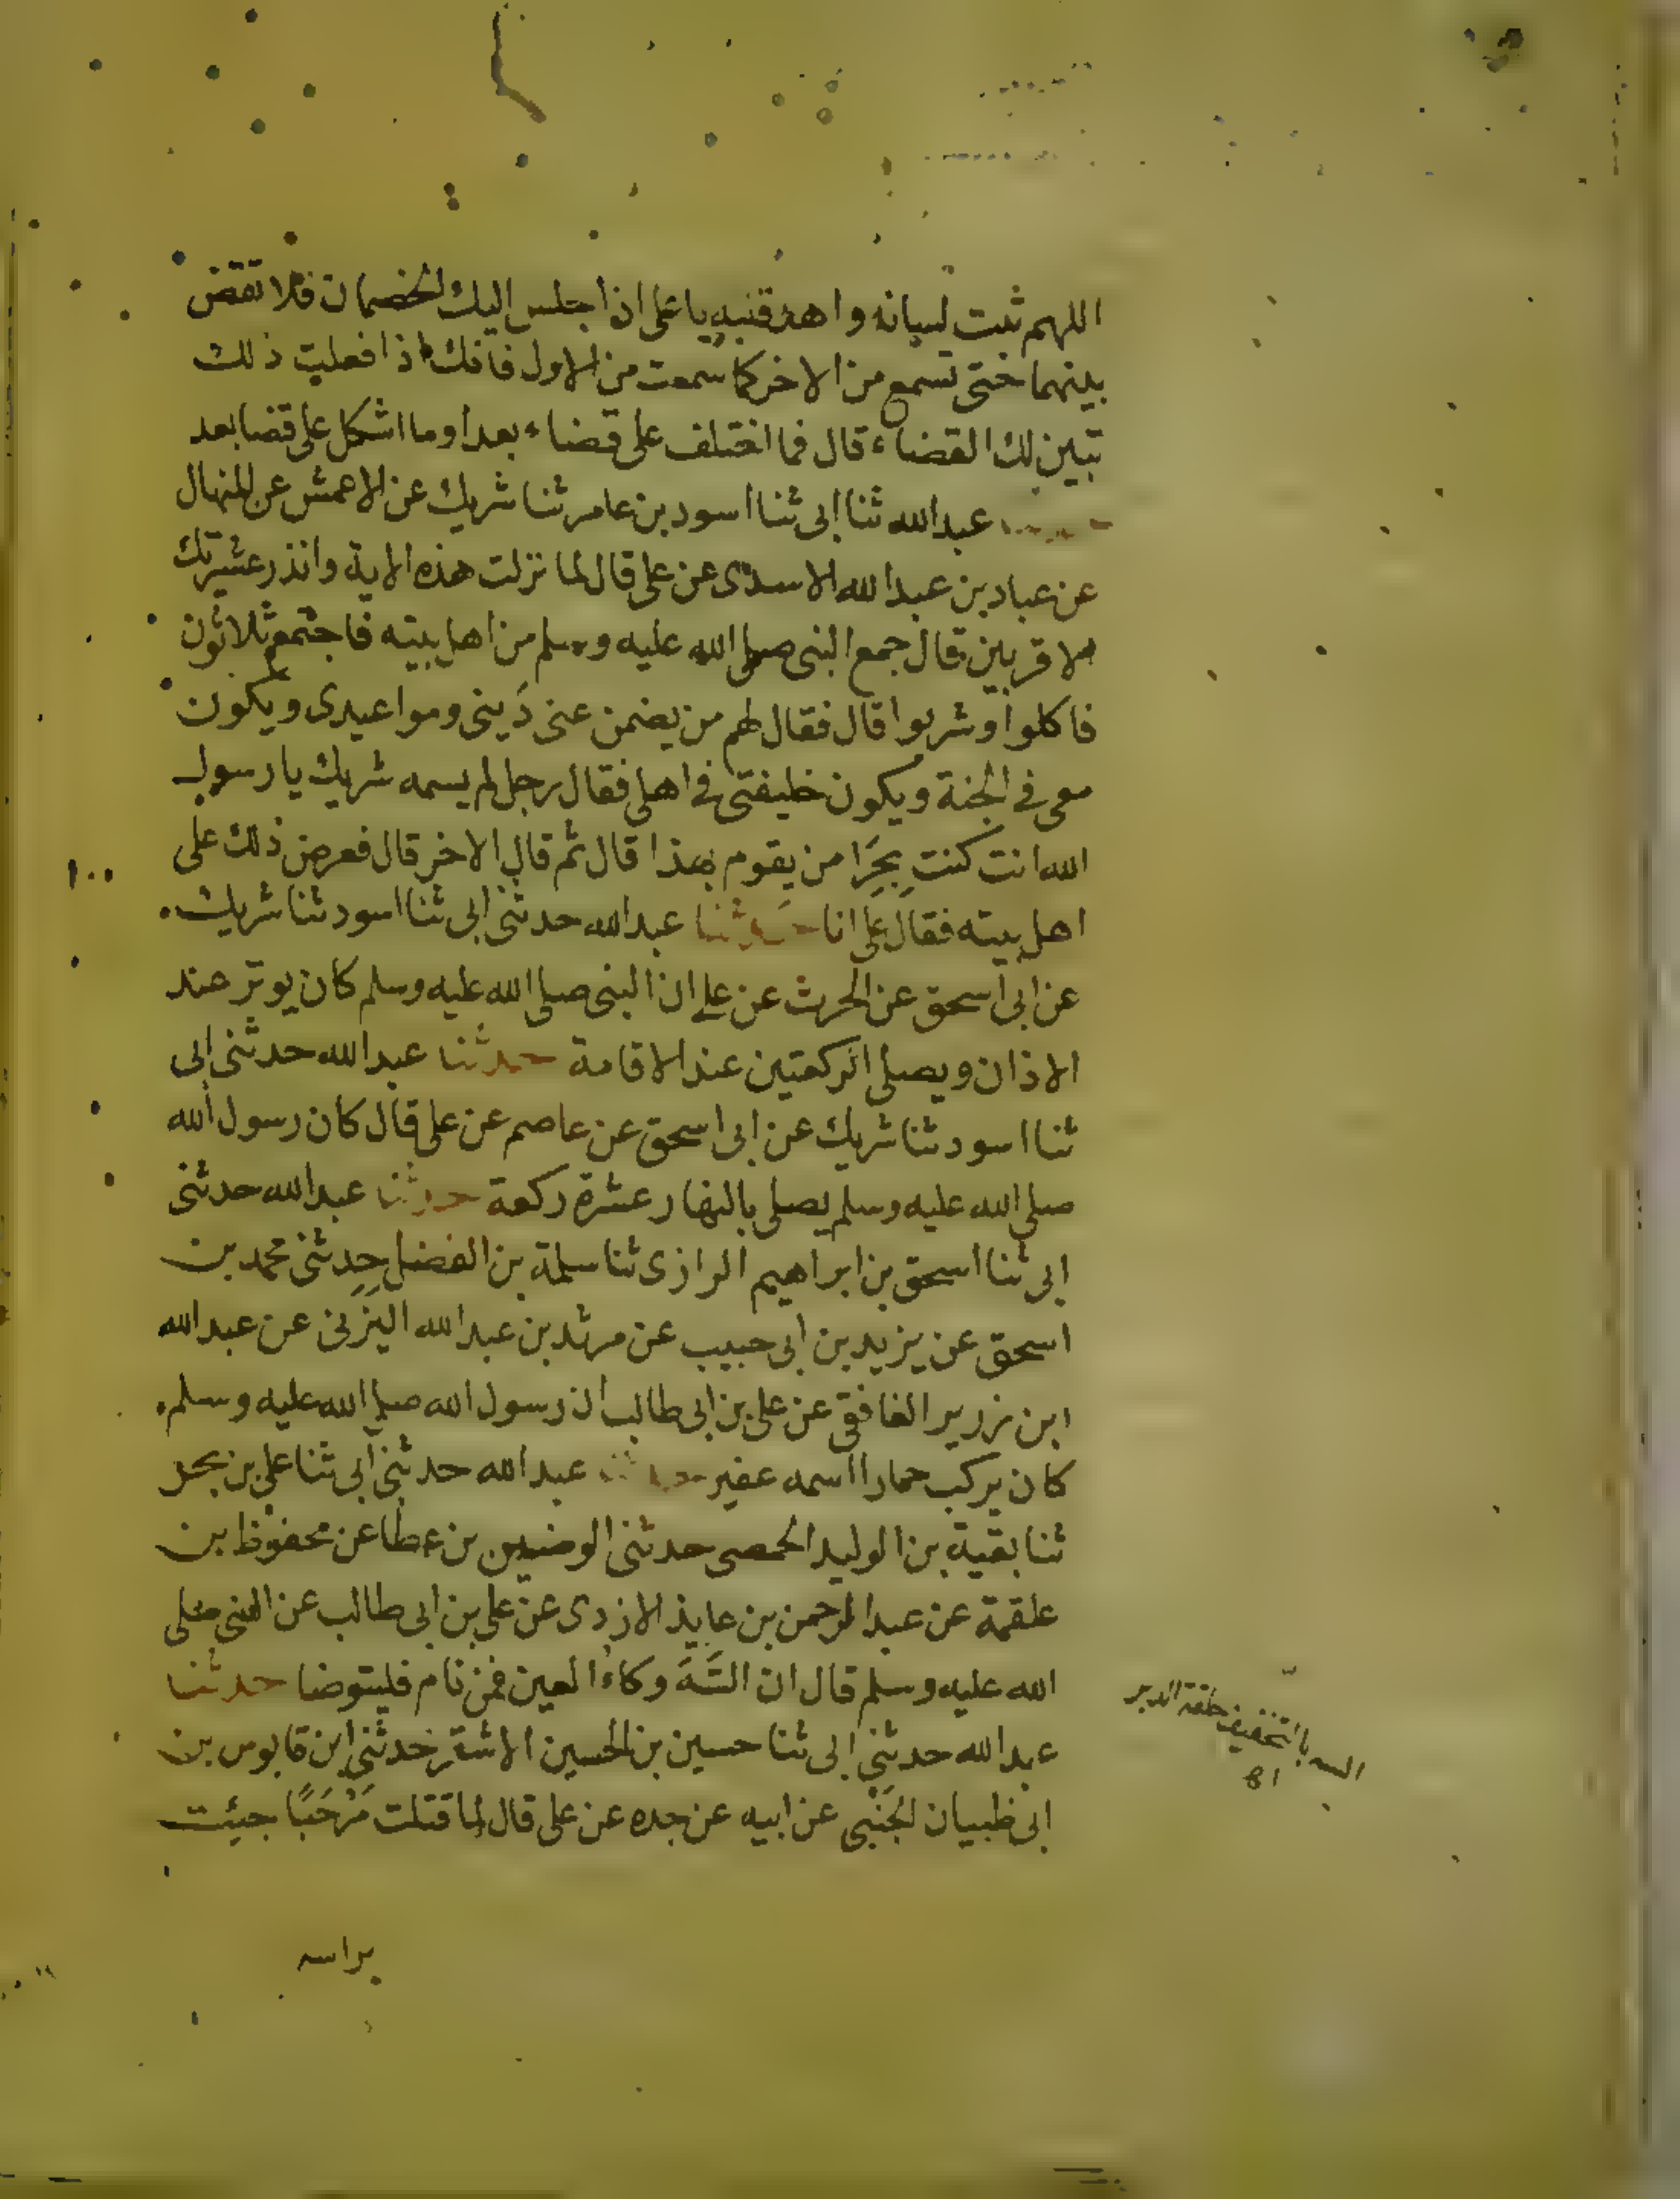 اللهم ثبت لسانه واهد قلبه يا على اذا جلس اليك الخصمان فلا تقض
بينهما حتى تسمع من الاخر كما سمعت من الاول فانك اذا فعلت ذلك
تبين لك القضاء قال فما اختلف على قضاء بعد او ما اشكل على قضا بعد
عبدالله ثنا ابى ثنا اسود بن عامر ثنا شريك عن الاعمش عن المنهال
عن عباد بن عبدالله الاسدى عن على قال لما نزلت هذه الاية وانذر عشيرتك
الاقربين قال جمع النبى صلى الله عليه وسلم من اهل بيته فاجتمع ثلاثون
فاكلوا وشربوا قال فقال لهم من يضمن عنى دَينى ومواعيدى ويكون
معى فى الجنة ويكون خليفتى فى اهلى فقال رجل لم يسمه شريك يا رسول
الله انت كنت بحَرًا من يقوم بهذا قال ثم قال الاخر قال فعرض ذلك على
اهل بيته فقال على انا حدثنا عبدالله حدثنى ابى ثنا اسود ثنا شريك
عن ابى اسحق عن الحرث عن على ان النبى صلى الله عليه وسلم كان يوتر عند
الاذان ويصلى الركعتين عند الاقامة حدثنا عبدالله حدثنى ابى
ثنا اسود ثنا شريك عن ابى اسحق عن عاصم عن على قال كان رسول الله
صلى الله عليه وسلم يصلى بالنهار عشرة ركعة حدثنا عبدالله حدثنى
ابى ثنا اسحق بن ابراهيم الرازى ثنا سلمة بن الفضل حدثنى محمد بن
اسحق عن يزيد بن ابى حبيب عن مرثد بن عبدالله اليَزَنى عن عبدالله
ابن زرير الغافقى عن على بن ابى طالب ان رسول الله صلى الله عليه وسلم
كان يركب حمارا اسمه عفير حدثنا عبدالله حدثنى ابى ثنا على بن بحر
ثنا بقية بن الوليد الحمصى حدثنى الوضين بن عطا عن محفوظ بن
علقمة عن عبد الرحمن بن عايذ الازدى عن على بن ابى طالب عن النبى صلى
الله عليه وسلم قال ان السَّهَ وكاءُ العين فمن نام فليتوضا حدثنا
عبدالله حدثنى ابى ثنا حسين بن الحسين الاشقر حدثنى ابن قابوس بن
ابى ظبيان الجَنْبى عن ابيه عن جده عن على قال لما قتلت مَرْحَبًا جيئت
السه بالتخفيف حلقة الدبر
براسه